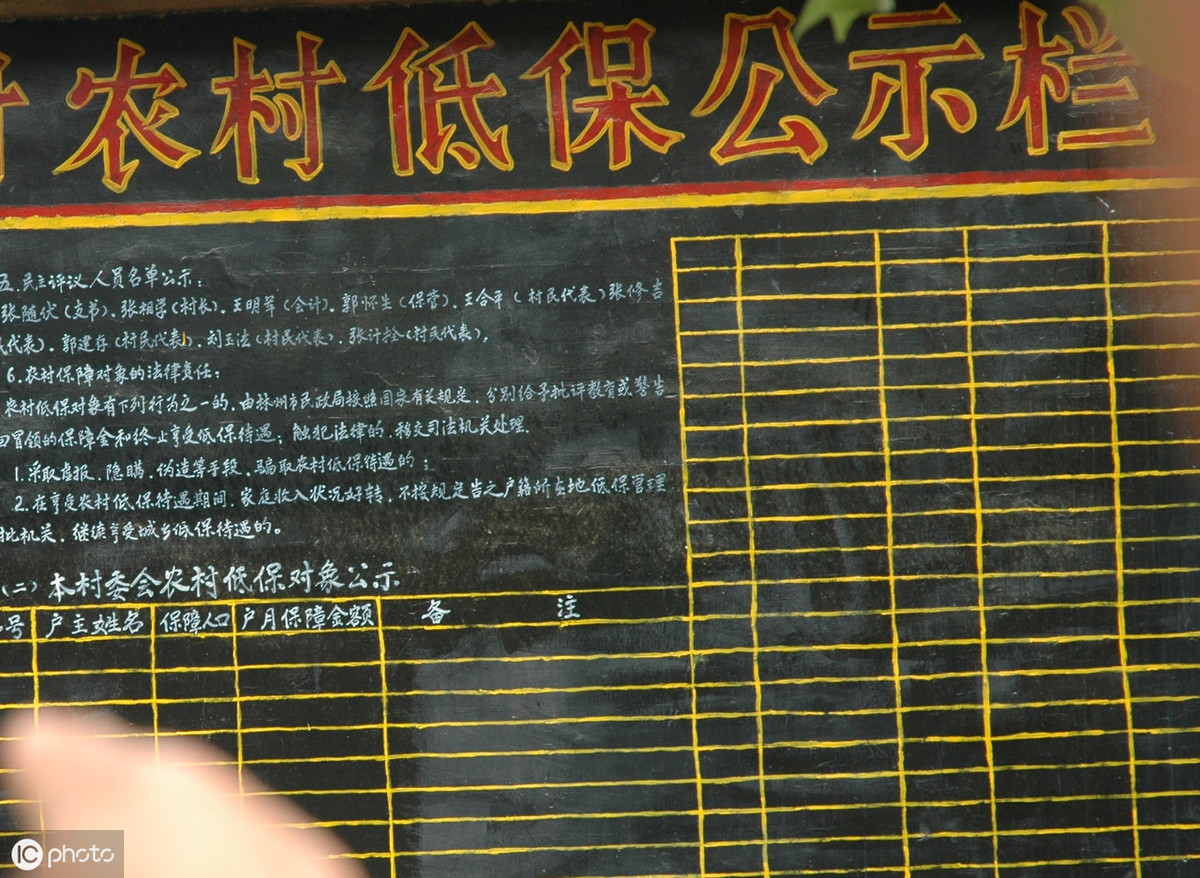 农村低保公示栏
五.民主评议人员名单公示:
张随伏(支书).张相学(村长).王明军(会计).郭怀生(保营).王合平(村民代表)张修吉
代表).郭建存(村民代表).刘玉法(村民代表).张计拴(村民代表).
6.农村保障对象的法律责任:
农村低保对象有下列行为之一的.由林州市民政局按照国家有关规定.分别给予批评教育或警告
回冒领的保障金和终止享受低保待遇;触犯法律的.移交司法机关处理.
1.采取虚报.隐瞒.伪造等手段.骗取农村低保待遇的;
2.在享受农村低保待遇期间.家庭收入状况好转.不按规定告之户籍所在地低保管理
批机关.继续享受城乡低保待遇的。
(二)本村委会农村低保对象公示
号 户主姓名 保障人口 户月保障金额 备 注
IC photo